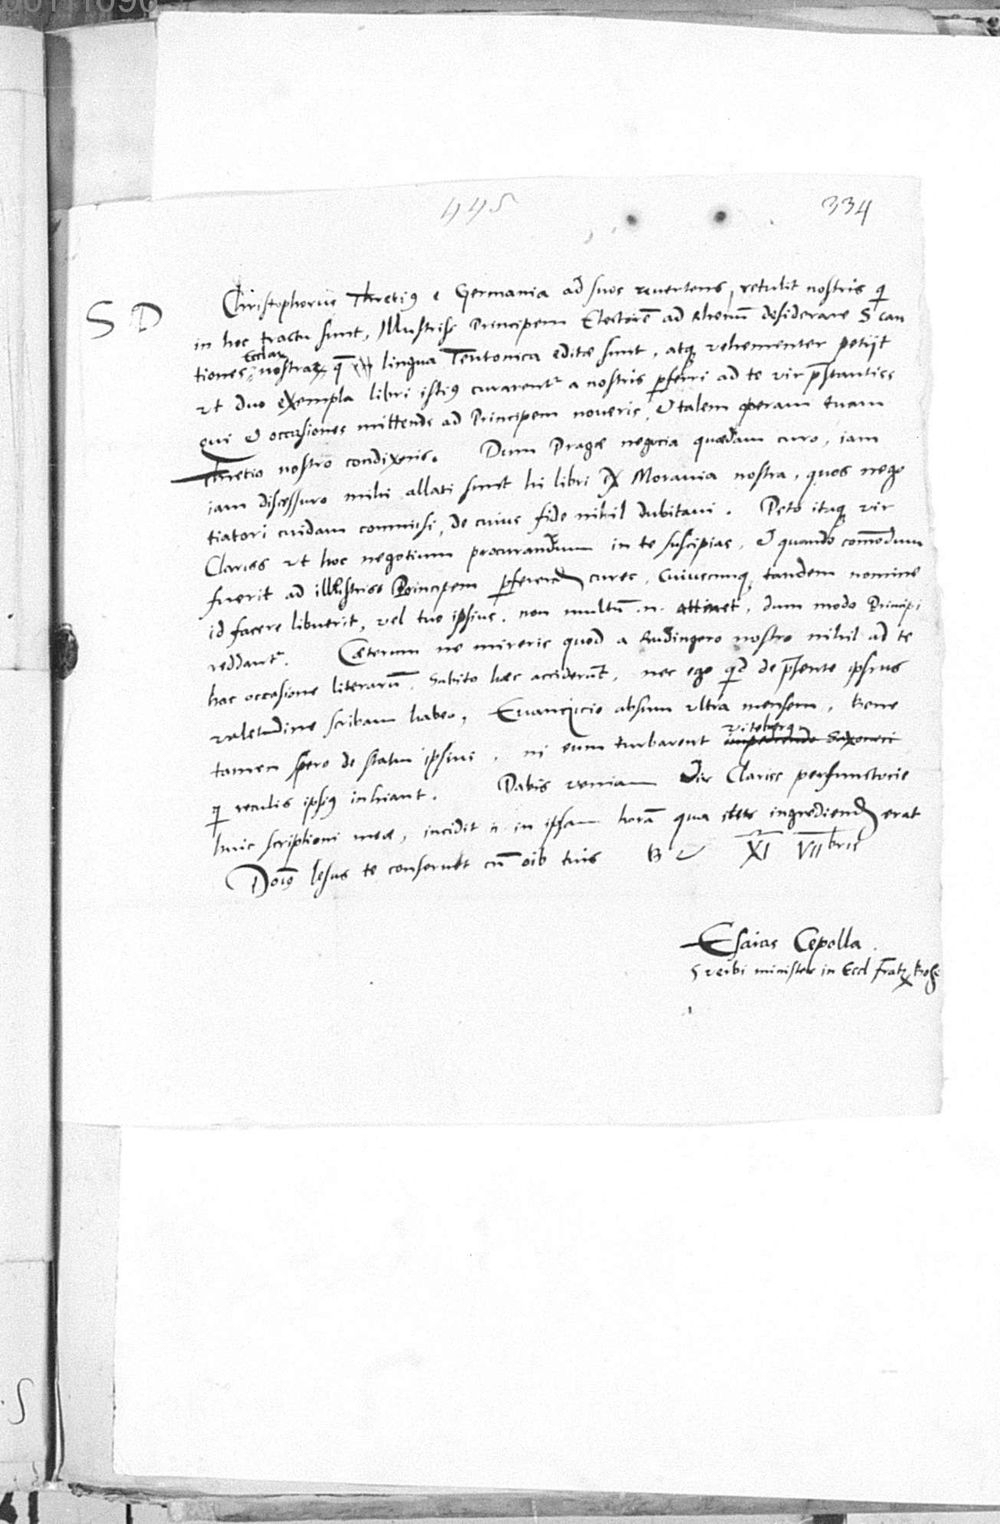 445
334
S D Christophorus Thretiꝰ e Germania ad suos revertens, retulit nostris qi
in hoc tractu sunt, Illustriss Principem Electorē ad Rhenū desiderare S can
Eccľar
tiones nostraꝝ, q̄ lingua Teutonica editæ sunt, atqꝫ vehementer petijt
vt duo exempla libri istiꝰ curarent a nostris pferri ad te vir pstantiss
qui & occasiones mittendi ad Principem noveris, & talem operam tuam
Thretio nostro condixeris. Dum Pragæ negocia quædam curo, iam
iam discessuro mihi allati sunt hi libri ex Moravia nostra, quos nego
tiatori cuidam commisi, de cuius fide nihil dubitavi. Peto itaqꝫ vir
Clariss vt hoc negotium procurandum in te suscipias, & quando com̄odum
fuerit ad illustriss Principem pferend cures, Cuiuscunqꝫ tandem nomine
id facere libuerit, vel tuo ipsius, non multū .n. attinet, dum modo Principi
reddant. Cæterum ne mireris quod a Rudingero nostro nihil ad te
hac occasione literarū, Subito hæc acciderūt, nec ego qd de pñsente ipsius
valetudine scribam habeo, Evancicio absum vltra mensem, Bene
vitebergē
tamen spero de statu ipsius, ni eum turbarent impediendo Saxonici
qi reculis ipsiꝰ inhiant. Dabis veniam Vir Clariss perfunctorie
huic scriptioni meæ, incidit .n. in ipsam horā qua iter ingrediend erat
Doīꝰ Iesus te conservet cū oib tuis B V XI VIIbris
Esaias Cepolla
S verbi minister in Eccl Fratꝝ Boh
S